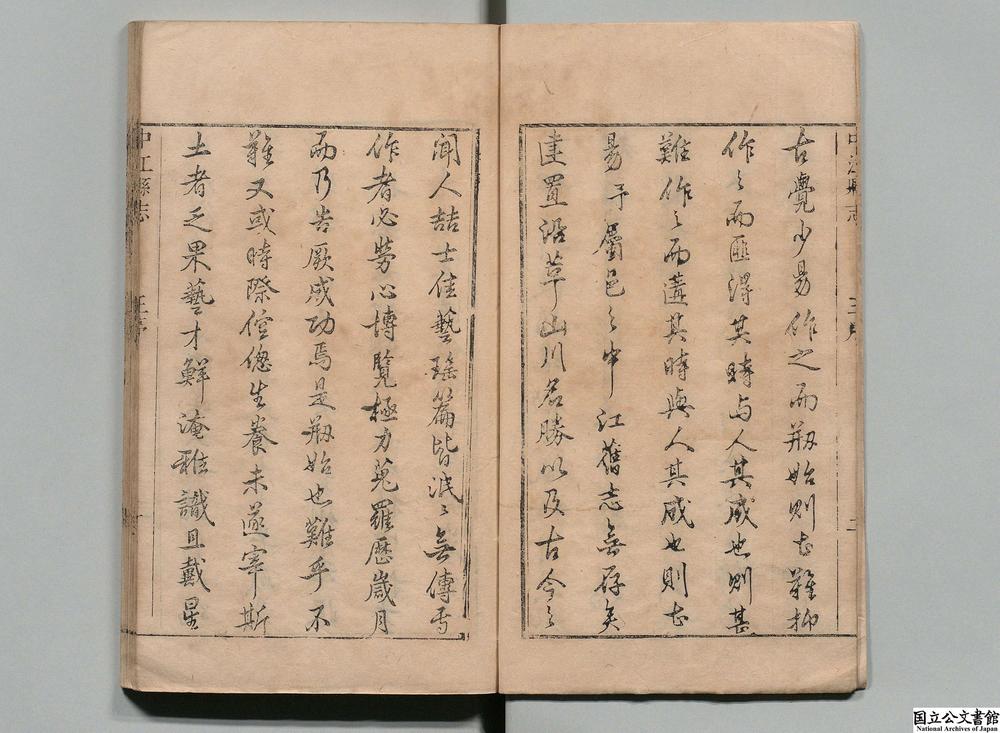 古覺少易作之而剏始則甚難抑
作之而匪得其時与人其成也則甚
難作之而遘其時與人其成也則甚
易予屬邑之中江舊志無存矣
建置沿革山川名勝以及古今之
聞人喆士佳藝瑤篇皆泯〻無傳焉
作者必勞心博覽極力蒐羅歷歲月
而乃告厥成功焉是剏始也難乎不
難又或時際倥偬生養未遂宰斯
土者乏果藝才鮮淹雅識且戴星
中江縣志
王序
国立公文書館
National Archives of Japan